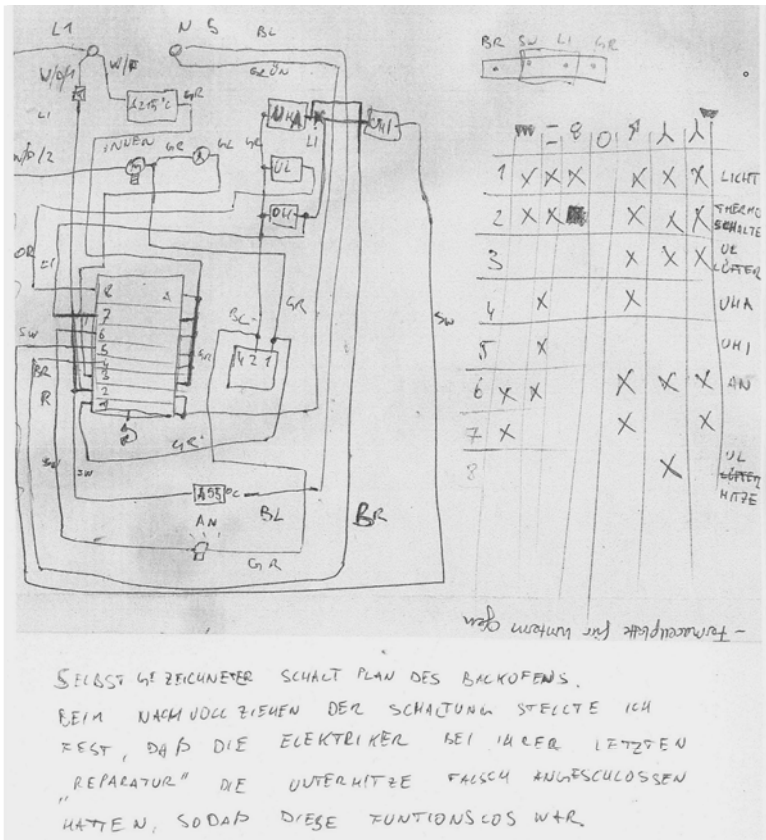 L1 N S BL
GRÜN
W/0/1 W/0
LI
GR
INNEN GR GL
W/0/2
UHA LI UHI
UL
OH
OR
LI
8
7
6
5
4
3
2
1
SW
BR
R
GR
BL GR
4 2 1
SW
GR
SW
°C
BL
BR
AN
GR
BR SW LI GR
1 X X X X X X LICHT
2 X X X X X THERMO
SCHALTE
3 X X X UL
LÜFTER
4 X X UHA
5 X UHI
6 X X X X X AN
7 X X X
8 X UL
LÜFTER
HITZE
- Fermacellplatte für unterm Ofen
SELBST GEZEICHNETER SCHALTPLAN DES BACKOFENS.
BEIM NACHVOLLZIEHEN DER SCHALTUNG STELLTE ICH
FEST, DAß DIE ELEKTRIKER BEI IHRER LETZTEN
„REPARATUR" DIE UNTERHITZE FALSCH ANGESCHLOSSEN
HATTEN, SODAß DIESE FUNTIONSLOS WAR.